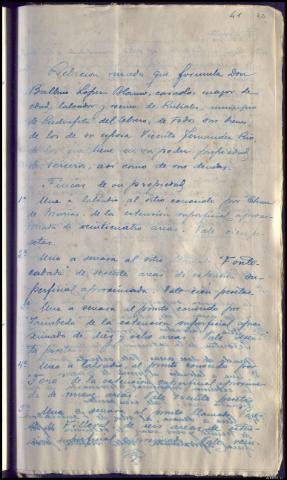 41
Relacion jurada que formula Don
Balbino Lopez Blanco, casado, mayor de
edad, labrador y vecino de Rubiales, municipio
de Piedrafita del Cebrero, de todos sus bienes,
de los de su esposa Vicenta Fernandez
de los que tiene en su poder propiedad
de terceros, asi como de sus deudas.
Fincas de su propiedad
1ª Una a labradio al sitio conocido por
de Murias, de la extension superficial aproxi-
mada de veinticuatro areas. Vale cien pe-
setas.
2ª Una a senara al sitio "Fonte
cabada" de sesenta areas de extension su-
perficial aproximada. Vale cien pesetas
3ª Una a senara al punto conocido por
de la extension superficial apro-
ximada de diez y ocho areas. Vale
ta pesetas
4ª Una a labradio, al punto conocido por
de la extension superficial aproxima-
da de nueve areas. Vale
5ª Una a senara al punto llamado
de seis areas de exten-
sion superficial aproximada. Vale